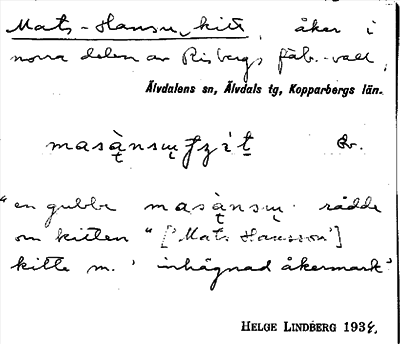 Mats-Hansu kitt, åker i
norra delen av Risbergs fäb.-vall,
Älvdalens sn, Älvdals tg, Kopparbergs län.
"en gubbe rådde
om kitten" ['Mats Hansson']
kitte m. 'inhägnad åkermark'
HELGE LINDBERG 1934.